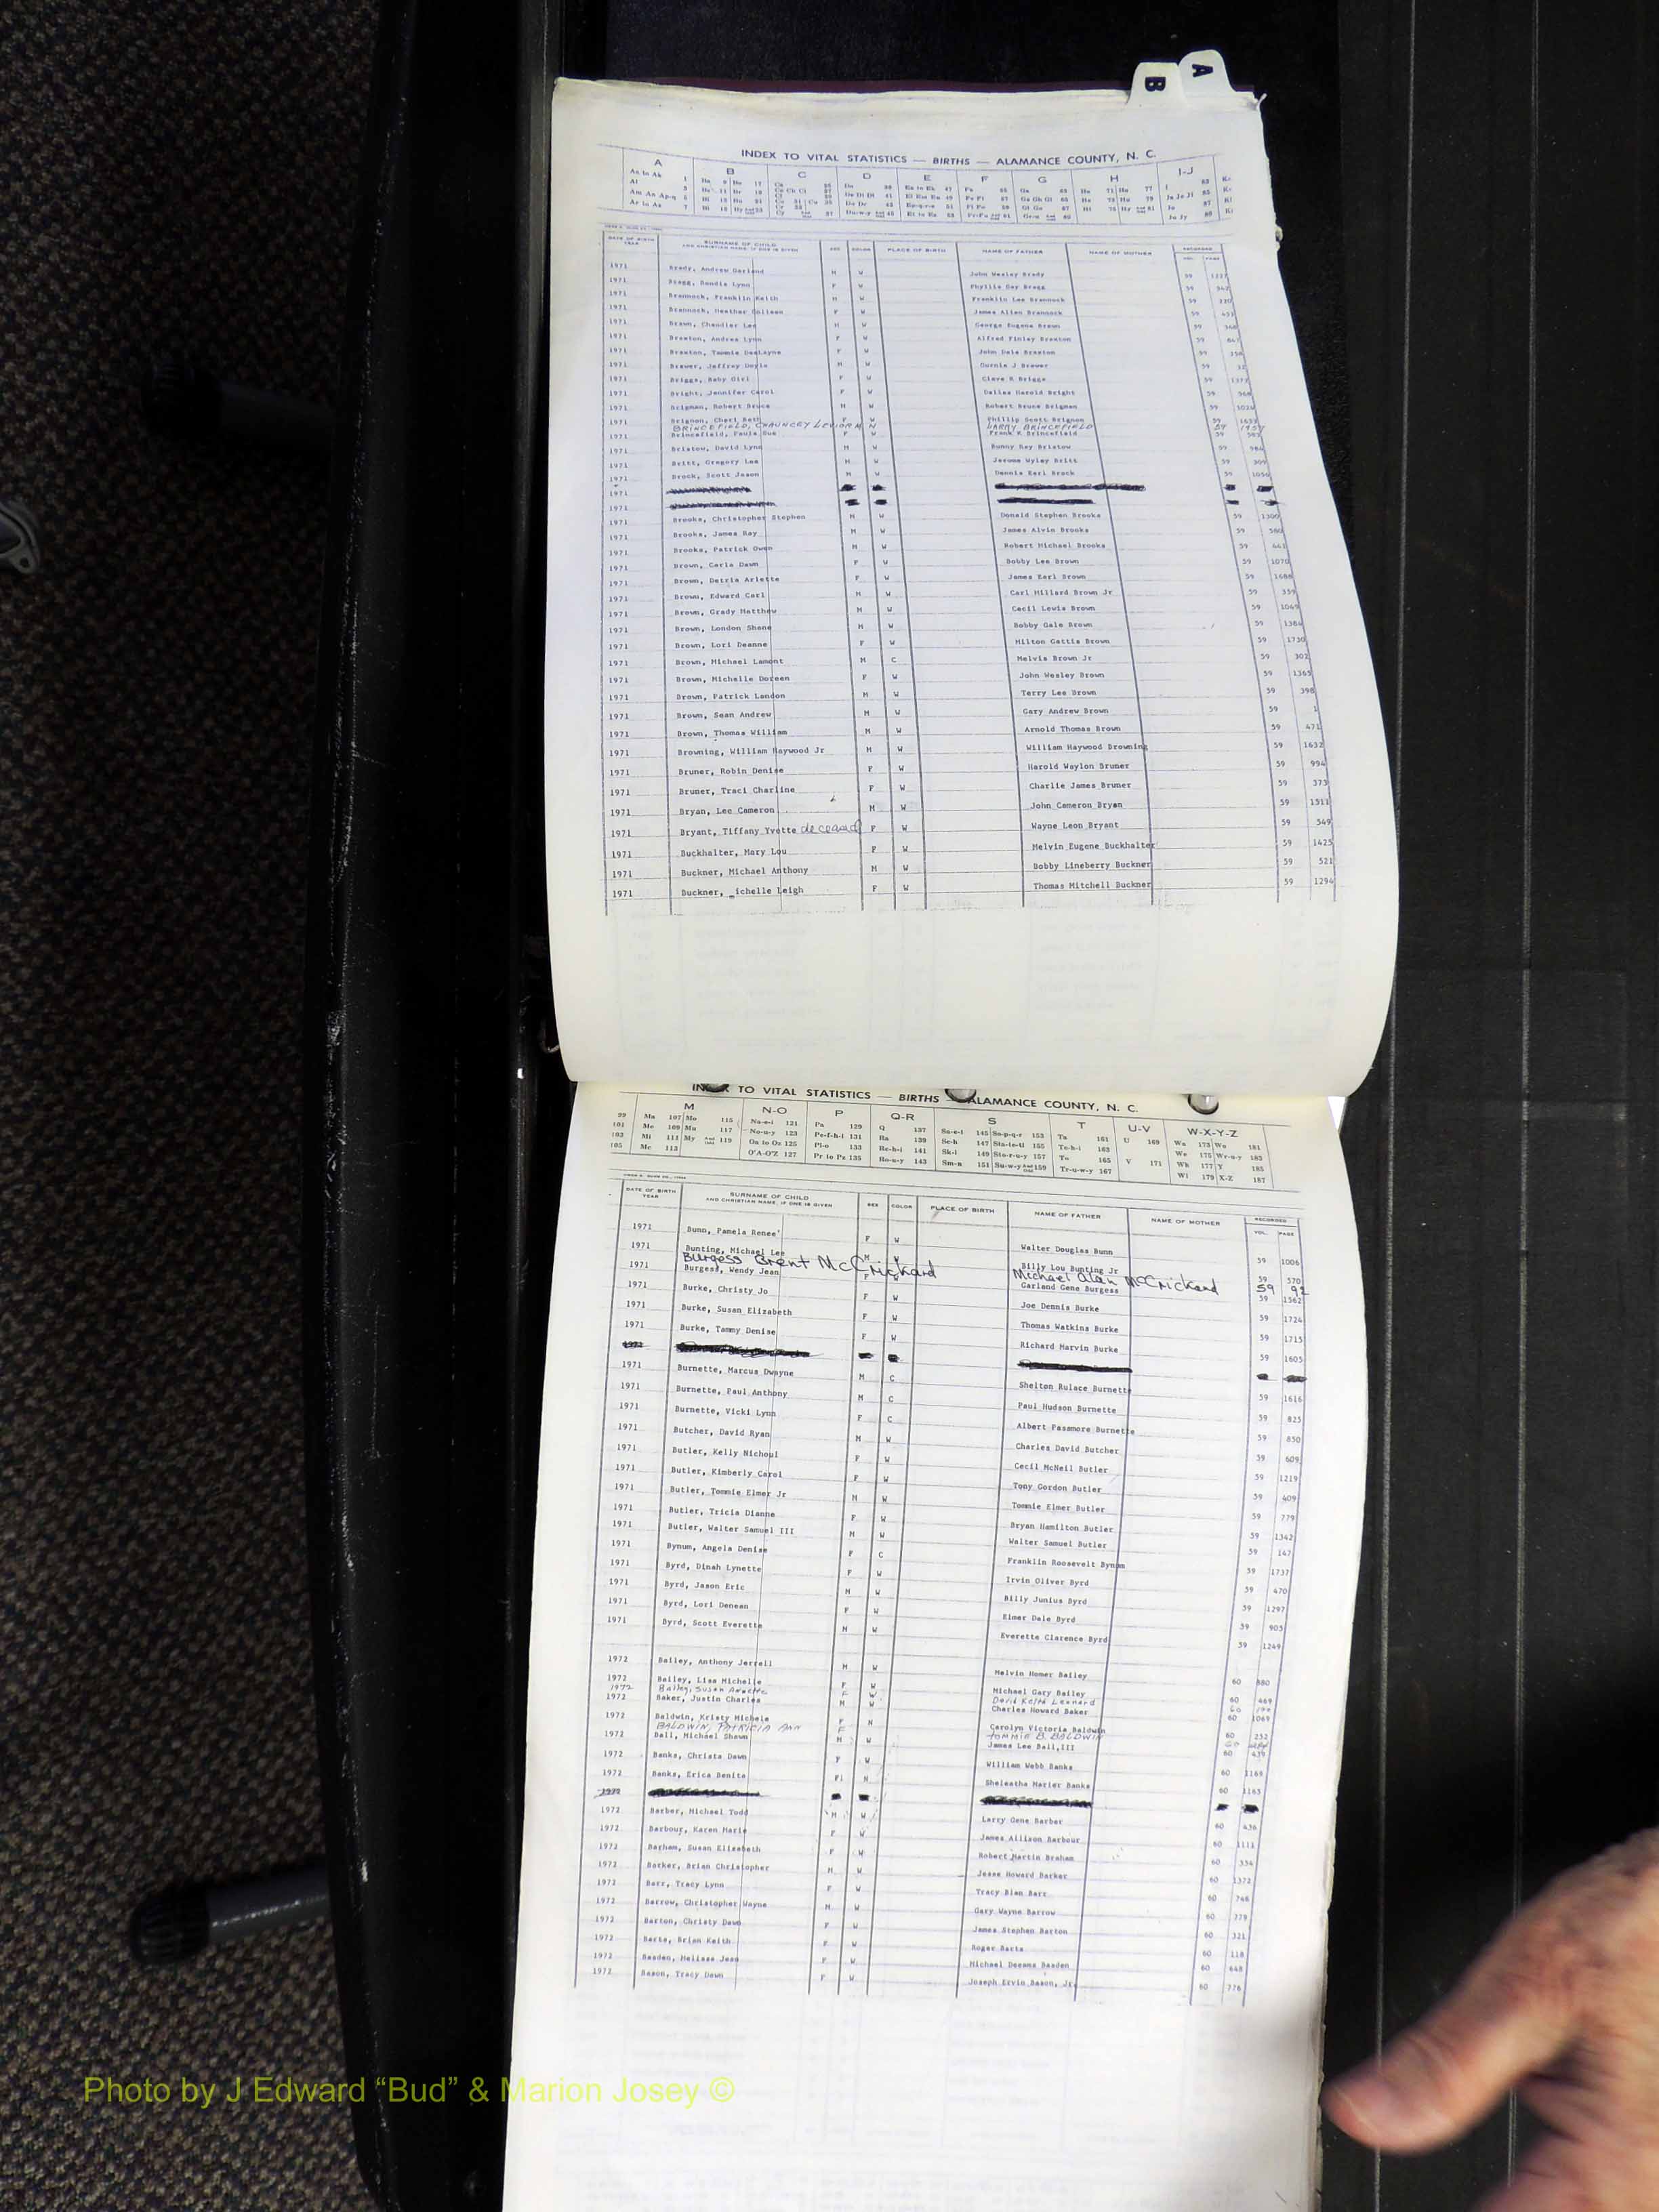 A
B
INDEX TO VITAL STATISTICS — BIRTHS — ALAMANCE COUNTY, N. C.
A B C D E F G H I-J
DATE OF BIRTH YEAR SURNAME OF CHILD AND CHRISTIAN NAME, IF ONE IS GIVEN SEX COLOR PLACE OF BIRTH NAME OF FATHER NAME OF MOTHER RECORDED VOL. PAGE
1971 Brady, Andrew Darland M W John Wesley Brady 59
1971 Bragg, Sandie Lynn F W Phyllis Gay Bragg 59
1971 Brannock, Franklin Keith M W Franklin Lee Brannock 59
1971 Brannock, Heather Colleen F W James Allen Brannock 59
1971 Brawn, Chandler Lee M W George Eugene Brown 59
1971 Braxton, Andrea Lynn F W Alfred Finley Braxton 59
1971 Braxton, Tammie DeeLayne F W John Dale Braxton 59
1971 Brewer, Jeffrey Doyle M W Gurnie J Brewer 59
1971 Briggs, Baby Girl F W Cleve R Briggs 59
1971 Bright, Jennifer Carol F W Dallas Harold Bright 59
1971 Brigman, Robert Bruce M W Robert Bruce Brigman 59
1971 Brignon, Cheri Beth F W Phillip Scott Brignon 59
BRINCEFIELD, CHAUNCEY LARRY BRINCEFIELD
1971 Brincefield, Paula Sue F W Frank K Brincefield 59
1971 Bristow, David Lynn M W Bunny Ray Bristow 59
1971 Britt, Gregory Lee M W Jerome Wyley Britt 59
1971 Brock, Scott Jason M W Dennis Earl Brock 59
1971
1971
1971 Brooks, Christopher Stephen M W Donald Stephen Brooks 59 1300
1971 Brooks, James Ray M W James Alvin Brooks 59 560
1971 Brooks, Patrick Owen M W Robert Michael Brooks 59
1971 Brown, Carla Dawn F W Bobby Lee Brown 59 1070
1971 Brown, Detria Arlette F W James Earl Brown 59 1688
1971 Brown, Edward Carl M W Carl Millard Brown Jr 59 359
1971 Brown, Grady Matthew M W Cecil Lewis Brown 59 1069
1971 Brown, London Shane M W Bobby Gale Brown 59 1384
1971 Brown, Lori Deanne F W Milton Gattis Brown 59 1730
1971 Brown, Michael Lamont M C Melvis Brown Jr 59 302
1971 Brown, Michelle Doreen F W John Wesley Brown 59 1365
1971 Brown, Patrick Landon M W Terry Lee Brown 59 398
1971 Brown, Sean Andrew M W Gary Andrew Brown 59 1
1971 Brown, Thomas William M W Arnold Thomas Brown 59 471
1971 Browning, William Haywood Jr M W William Haywood Browning 59 1632
1971 Bruner, Robin Denise F W Harold Waylon Bruner 59 994
1971 Bruner, Traci Charline F W Charlie James Bruner 59 373
1971 Bryan, Lee Cameron M W John Cameron Bryan 59 1511
1971 Bryant, Tiffany Yvette deceased F W Wayne Leon Bryant 59 549
1971 Buckhalter, Mary Lou F W Melvin Eugene Buckhalter 59 1425
1971 Buckner, Michael Anthony M W Bobby Lineberry Buckner 59 521
1971 Buckner, _ichelle Leigh F W Thomas Mitchell Buckner 59 1294
INDEX TO VITAL STATISTICS — BIRTHS — ALAMANCE COUNTY, N. C.
M N-O P Q-R S T U-V W-X-Y-Z
99 Ma 107 Mo 115 Na-e-i 121 Pa 129 Q 137 Sa-e-i 145 Sn-p-q-r 153 Ta 161 U 169 Wa 173 Wo 181
101 Mc 109 Mu 117 No-u-y 123 Pe-f-h-i 131 Ra 139 Sc-h 147 Sta-te-ti 155 Te-h-i 163 We 175 Wr-u-y 183
103 Mi 111 My 119 Oa to Oz 125 Pl-o 133 Re-h-i 141 Sk-l 149 Sto-r-u-y 157 To 165 V 171 Wh 177 Y 185
105 Mc 113 O'A-O'Z 127 Pr to Pz 135 Ro-u-y 143 Sm-n 151 Su-w-y 159 Tr-u-w-y 167 Wi 179 X-Z 187
DATE OF BIRTH YEAR SURNAME OF CHILD AND CHRISTIAN NAME, IF ONE IS GIVEN SEX COLOR PLACE OF BIRTH NAME OF FATHER NAME OF MOTHER RECORDED VOL. PAGE
1971 Bunn, Pamela Renee' F W Walter Douglas Bunn 59 1006
1971 Bunting, Michael Lee M W Billy Lou Bunting Jr 59 570
Burgess Brent McCrickard Michael Alan McCrickard 59 92
1971 Burgess, Wendy Jean F Garland Gene Burgess 59 1562
1971 Burke, Christy Jo F W Joe Dennis Burke 59 1724
1971 Burke, Susan Elizabeth F W Thomas Watkins Burke 59 1715
1971 Burke, Tammy Denise F W Richard Marvin Burke 59 1605
1971 Burnette, Marcus Dwayne M C Shelton Rulace Burnette 59 1616
1971 Burnette, Paul Anthony M C Paul Hudson Burnette 59 825
1971 Burnette, Vicki Lynn F C Albert Passmore Burnette 59 850
1971 Butcher, David Ryan M W Charles David Butcher 59 609
1971 Butler, Kelly Nichoul F W Cecil McNeil Butler 59 1219
1971 Butler, Kimberly Carol F W Tony Gordon Butler 59 409
1971 Butler, Tommie Elmer Jr M W Tommie Elmer Butler 59 779
1971 Butler, Tricia Dianne F W Bryan Hamilton Butler 59 1342
1971 Butler, Walter Samuel III M W Walter Samuel Butler 59 147
1971 Bynum, Angela Denise F C Franklin Roosevelt Bynum 59 1737
1971 Byrd, Dinah Lynette F W Irvin Oliver Byrd 59 470
1971 Byrd, Jason Eric M W Billy Junius Byrd 59 1297
1971 Byrd, Lori Denean F W Elmer Dale Byrd 59 905
1971 Byrd, Scott Everette M W Everette Clarence Byrd 59 1249
1972 Bailey, Anthony Jerrell M W Melvin Homer Bailey 60 880
1972 Bailey, Lisa Michelle F W Michael Gary Bailey 60 469
1972 Bailey, Susan Annette F W David Keith Leonard 60
1972 Baker, Justin Charles M W Charles Howard Baker 60 1069
1972 Baldwin, Kristy Michele F N Carolyn Victoria Baldwin 60 252
BALDWIN, PATRICIA ANN F TOMMIE B. BALDWIN 60
1972 Ball, Michael Shawn M W James Lee Ball,III 60 439
1972 Banks, Christa Dawn F W William Webb Banks 60 1169
1972 Banks, Erica Benita F N Sheleatha Marier Banks 60 1165
1972
1972 Barber, Michael Todd M W Larry Gene Barber 60 436
1972 Barbour, Karen Marie F W James Allison Barbour 60 1111
1972 Barham, Susan Elizabeth F W Robert Martin Braham 60 334
1972 Barker, Brian Christopher M W Jesse Howard Barker 60 1372
1972 Barr, Tracy Lynn F W Tracy Blan Barr 60 746
1972 Barrow, Christopher Wayne M W Gary Wayne Barrow 60 779
1972 Barton, Christy Dawn F W James Stephen Barton 60 321
1972 Barts, Brian Keith F W Roger Barts 60 118
1972 Basden, Melissa Jean F W Michael Deems Basden 60 648
1972 Bason, Tracy Dawn F W Joseph Ervin Bason, Jr. 60 776
Photo by J Edward “Bud” & Marion Josey ©